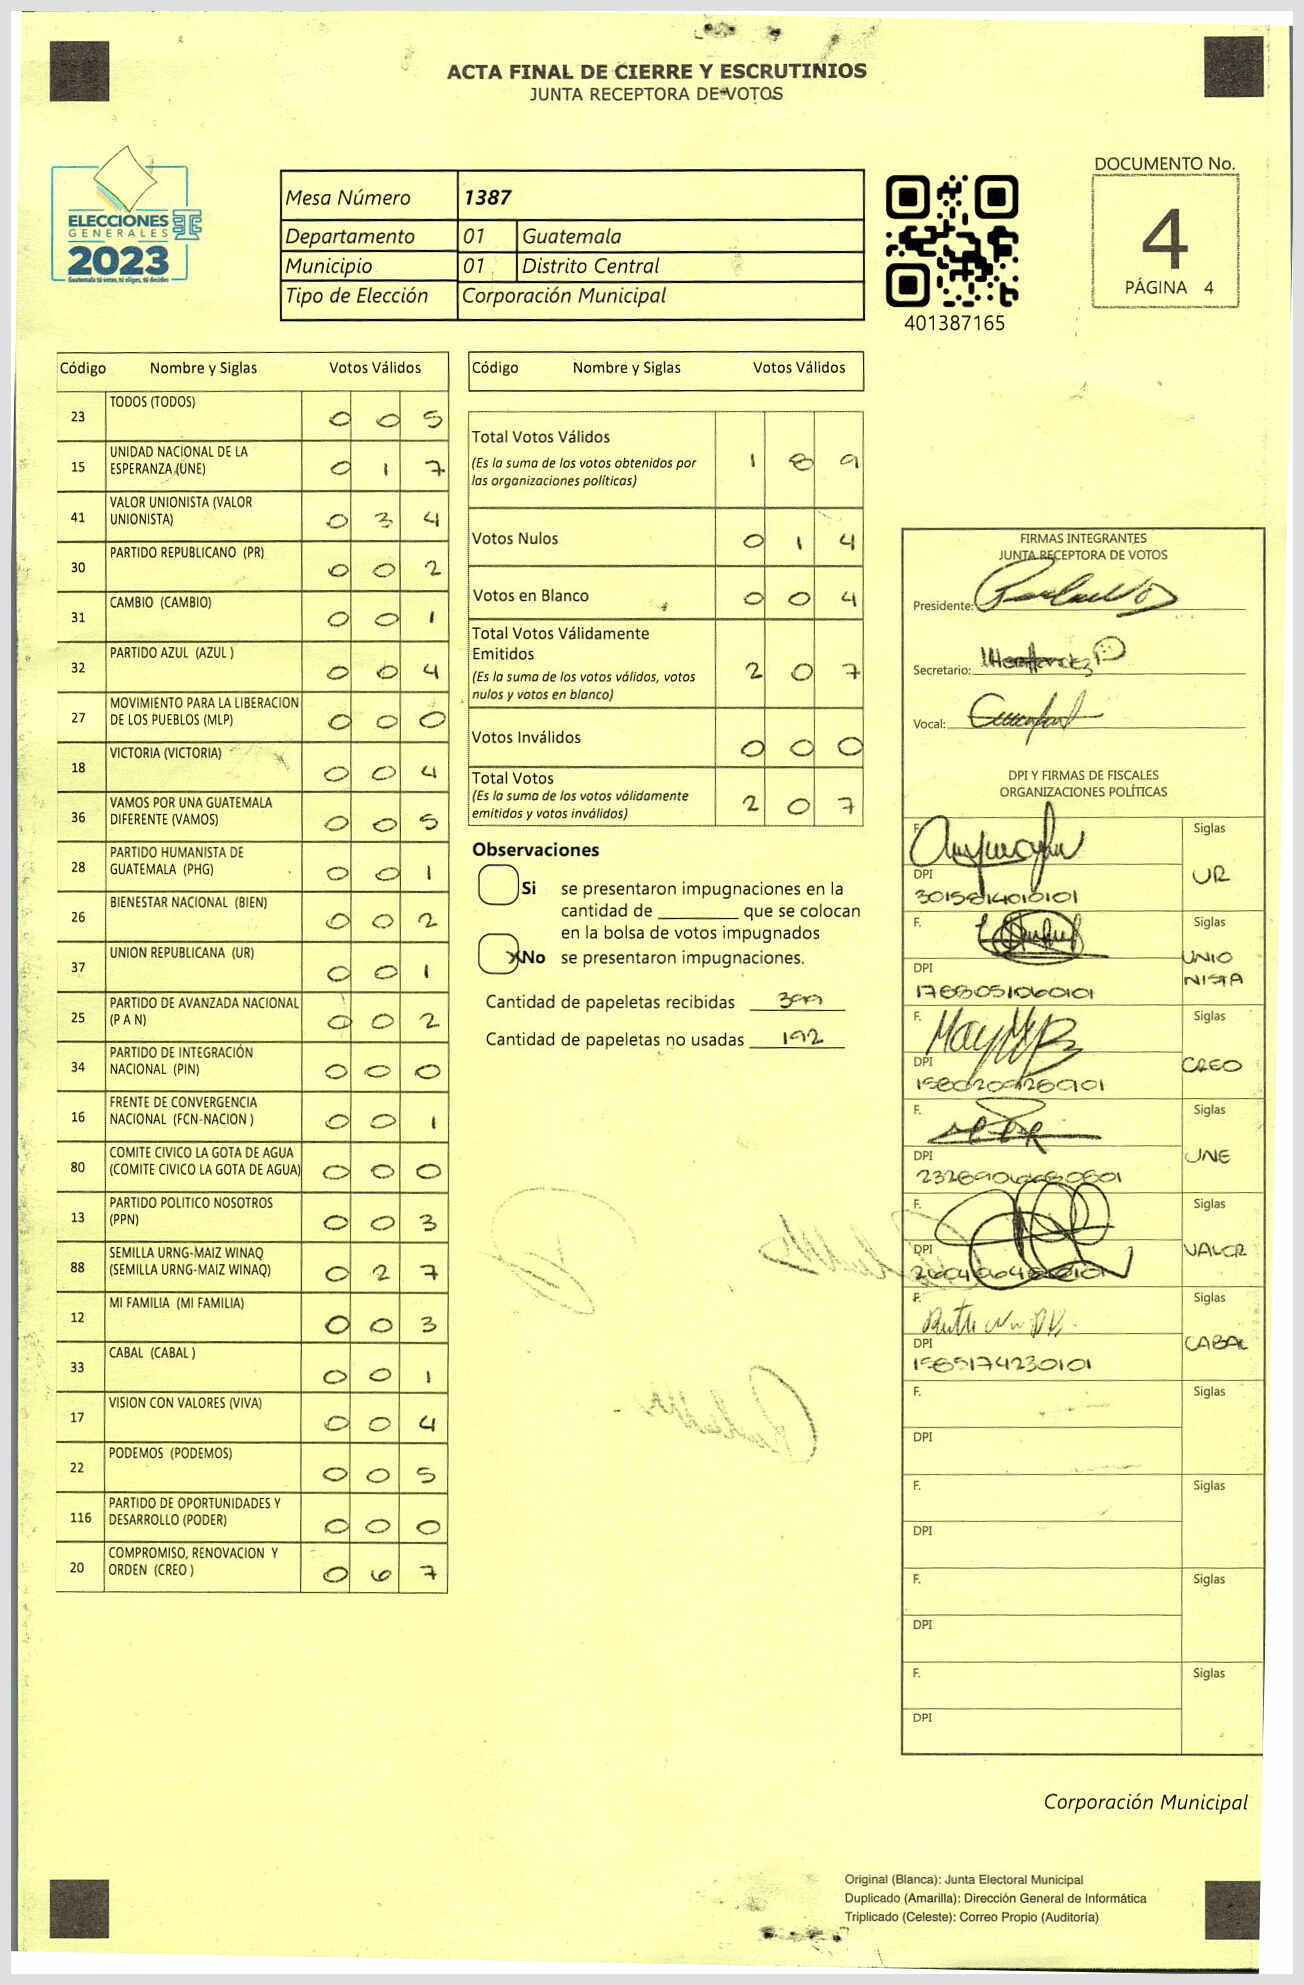 ACTA FINAL DE CIERRE Y ESCRUTINIOS
JUNTA RECEPTORA DE VOTOS
ELECCIONES
GENERALES
2023
Guatemala tú votas, tú eliges, tú decides
Mesa Número 1387
Departamento 01 Guatemala
Municipio 01 Distrito Central
Tipo de Elección Corporación Municipal
401387165
DOCUMENTO No.
4
PÁGINA 4
Código Nombre y Siglas Votos Válidos
23 TODOS (TODOS) 0 0 5
15 UNIDAD NACIONAL DE LA
ESPERANZA (UNE) 0 1 7
41 VALOR UNIONISTA (VALOR
UNIONISTA) 0 3 4
30 PARTIDO REPUBLICANO (PR) 0 0 2
31 CAMBIO (CAMBIO) 0 0 1
32 PARTIDO AZUL (AZUL ) 0 0 4
27 MOVIMIENTO PARA LA LIBERACION
DE LOS PUEBLOS (MLP) 0 0 0
18 VICTORIA (VICTORIA) 0 0 4
36 VAMOS POR UNA GUATEMALA
DIFERENTE (VAMOS) 0 0 5
28 PARTIDO HUMANISTA DE
GUATEMALA (PHG) 0 0 1
26 BIENESTAR NACIONAL (BIEN) 0 0 2
37 UNION REPUBLICANA (UR) 0 0 1
25 PARTIDO DE AVANZADA NACIONAL
(P A N) 0 0 2
34 PARTIDO DE INTEGRACIÓN
NACIONAL (PIN) 0 0 0
16 FRENTE DE CONVERGENCIA
NACIONAL (FCN-NACION ) 0 0 1
80 COMITE CIVICO LA GOTA DE AGUA
(COMITE CIVICO LA GOTA DE AGUA) 0 0 0
13 PARTIDO POLITICO NOSOTROS
(PPN) 0 0 3
88 SEMILLA URNG-MAIZ WINAQ
(SEMILLA URNG-MAIZ WINAQ) 0 2 7
12 MI FAMILIA (MI FAMILIA) 0 0 3
33 CABAL (CABAL ) 0 0 1
17 VISION CON VALORES (VIVA) 0 0 4
22 PODEMOS (PODEMOS) 0 0 5
116 PARTIDO DE OPORTUNIDADES Y
DESARROLLO (PODER) 0 0 0
20 COMPROMISO, RENOVACION Y
ORDEN (CREO ) 0 6 7
Código Nombre y Siglas Votos Válidos
Total Votos Válidos
(Es la suma de los votos obtenidos por
las organizaciones políticas) 1 8 9
Votos Nulos 0 1 4
Votos en Blanco 0 0 4
Total Votos Válidamente
Emitidos
(Es la suma de los votos válidos, votos
nulos y votos en blanco) 2 0 7
Votos Inválidos 0 0 0
Total Votos
(Es la suma de los votos válidamente
emitidos y votos inválidos) 2 0 7
Observaciones
Si se presentaron impugnaciones en la
cantidad de ________ que se colocan
en la bolsa de votos impugnados
X No se presentaron impugnaciones.
Cantidad de papeletas recibidas 399
Cantidad de papeletas no usadas 192
FIRMAS INTEGRANTES
JUNTA RECEPTORA DE VOTOS
Presidente:
Secretario:
Vocal:
DPI Y FIRMAS DE FISCALES
ORGANIZACIONES POLÍTICAS
F. Siglas
UR
DPI
3015814010101
F. Siglas
UNIO
NISTA
DPI
1788051060101
F. Siglas
CREO
DPI
F. Siglas
UNE
DPI
F. Siglas
VALOR
DPI
F. Siglas
CABAL
DPI
1585174230101
F. Siglas
DPI
F. Siglas
DPI
F. Siglas
DPI
F. Siglas
DPI
Corporación Municipal
Original (Blanca): Junta Electoral Municipal
Duplicado (Amarilla): Dirección General de Informática
Triplicado (Celeste): Correo Propio (Auditoría)